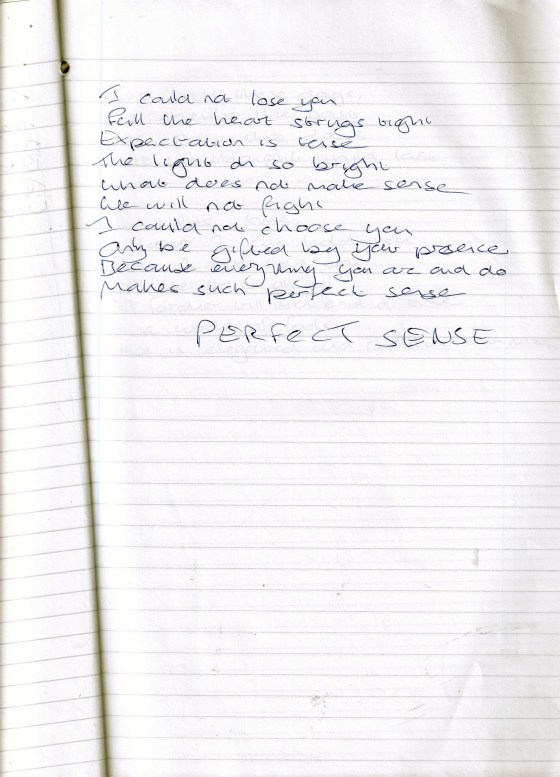 I could not lose you
Pull the heart strings tight
Expectation is terse
The light oh so bright
What does not make sense
We will not fight
I could not choose you
Only be gifted by your presence
Because everything you are and do
Makes such perfect sense
PERFECT SENSE